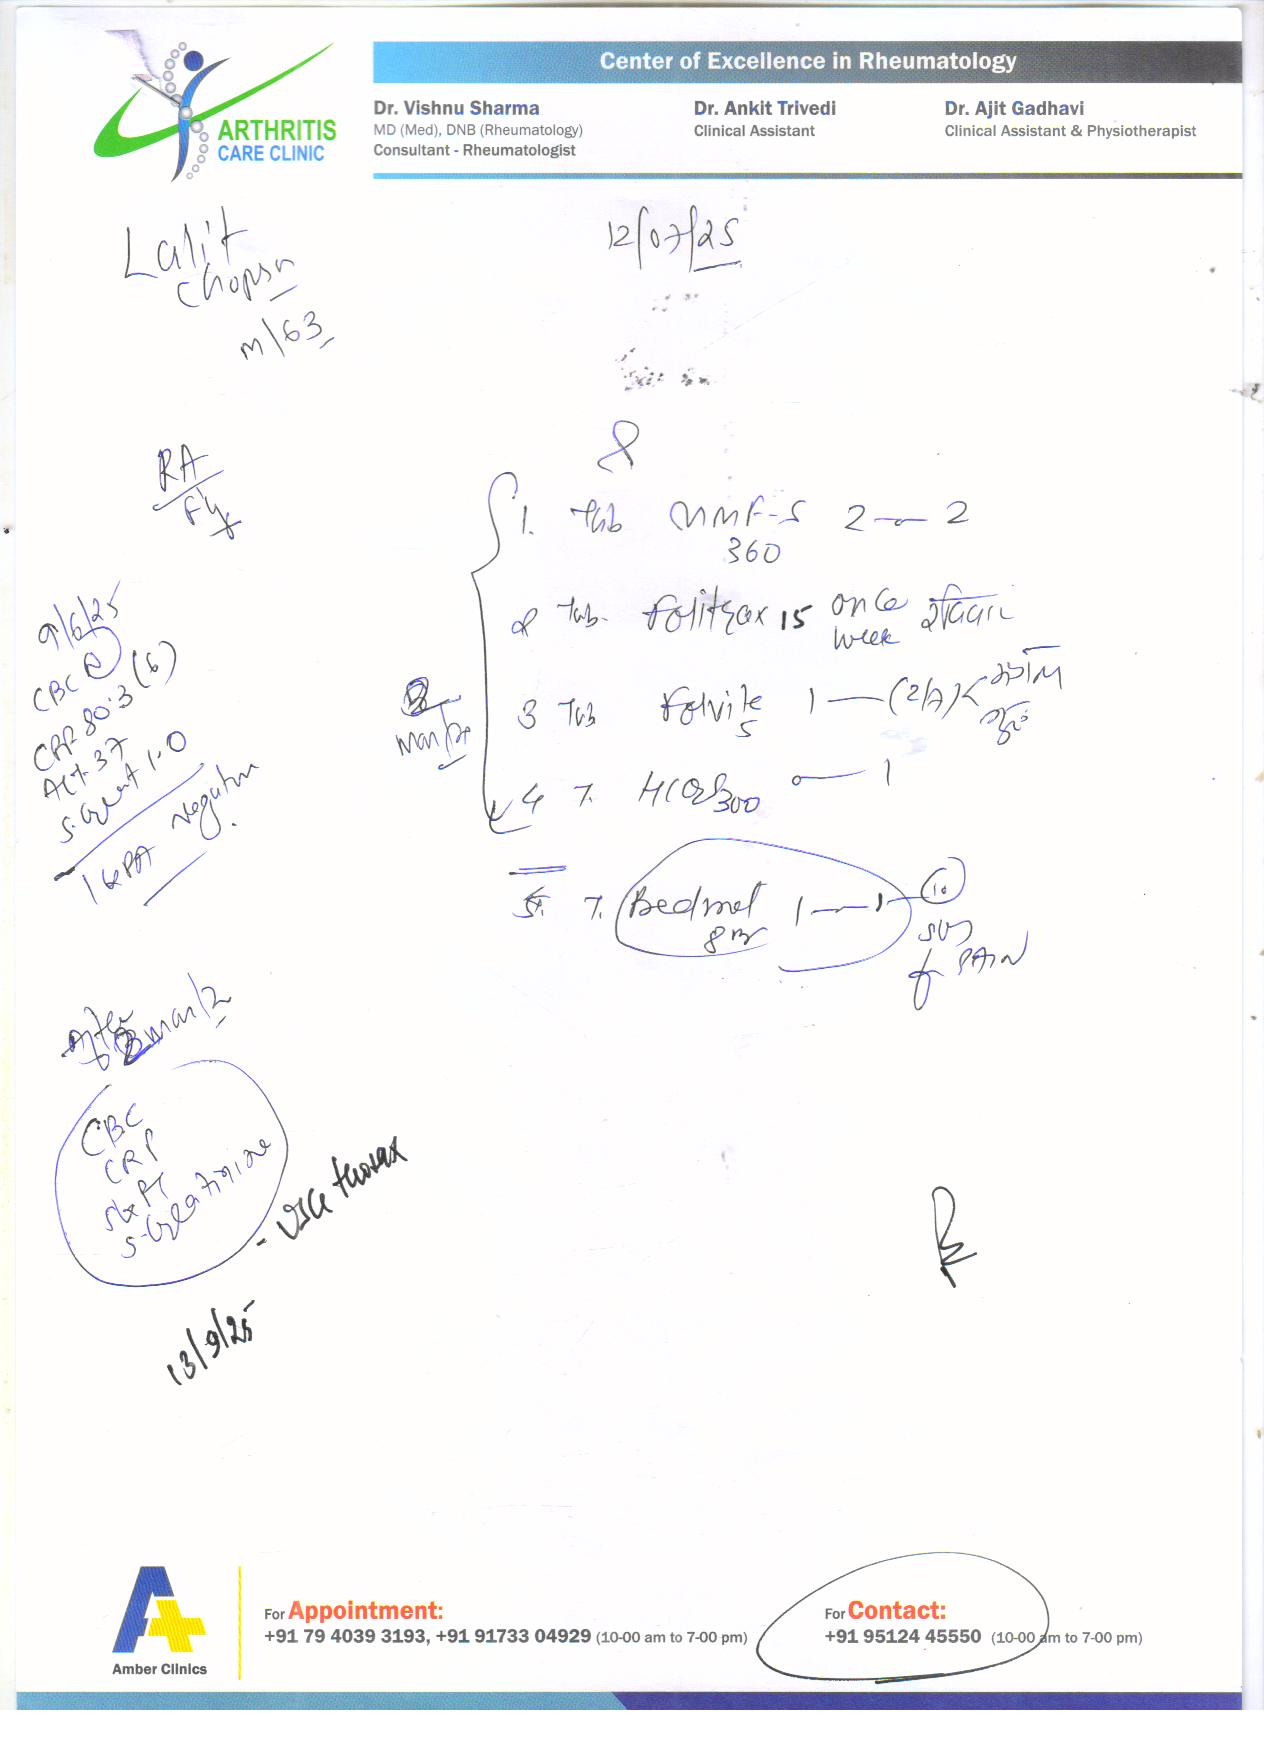 ARTHRITIS
CARE CLINIC
Center of Excellence in Rheumatology
Dr. Vishnu Sharma
MD (Med), DNB (Rheumatology)
Consultant - Rheumatologist
Dr. Ankit Trivedi
Clinical Assistant
Dr. Ajit Gadhavi
Clinical Assistant & Physiotherapist
Lalit
M/63
12/07/25
RA
1. Tab MMF-S 2 — 2
360
2 Tab. Folitrax 15 once week रविवार
3 Tab Folvite 1 —
5
4 T. HCQS 0 — 1
300
5. T. 1 — 1 10
SOS
for PAIN
9/6/25
CBC
CRP 80.3 (6)
ALT. 37
1.0
After
CBC
CRP
SGPT
S. Creatinine
13/9/25
A+
Amber Clinics
For Appointment:
+91 79 4039 3193, +91 91733 04929 (10-00 am to 7-00 pm)
For Contact:
+91 95124 45550 (10-00 am to 7-00 pm)